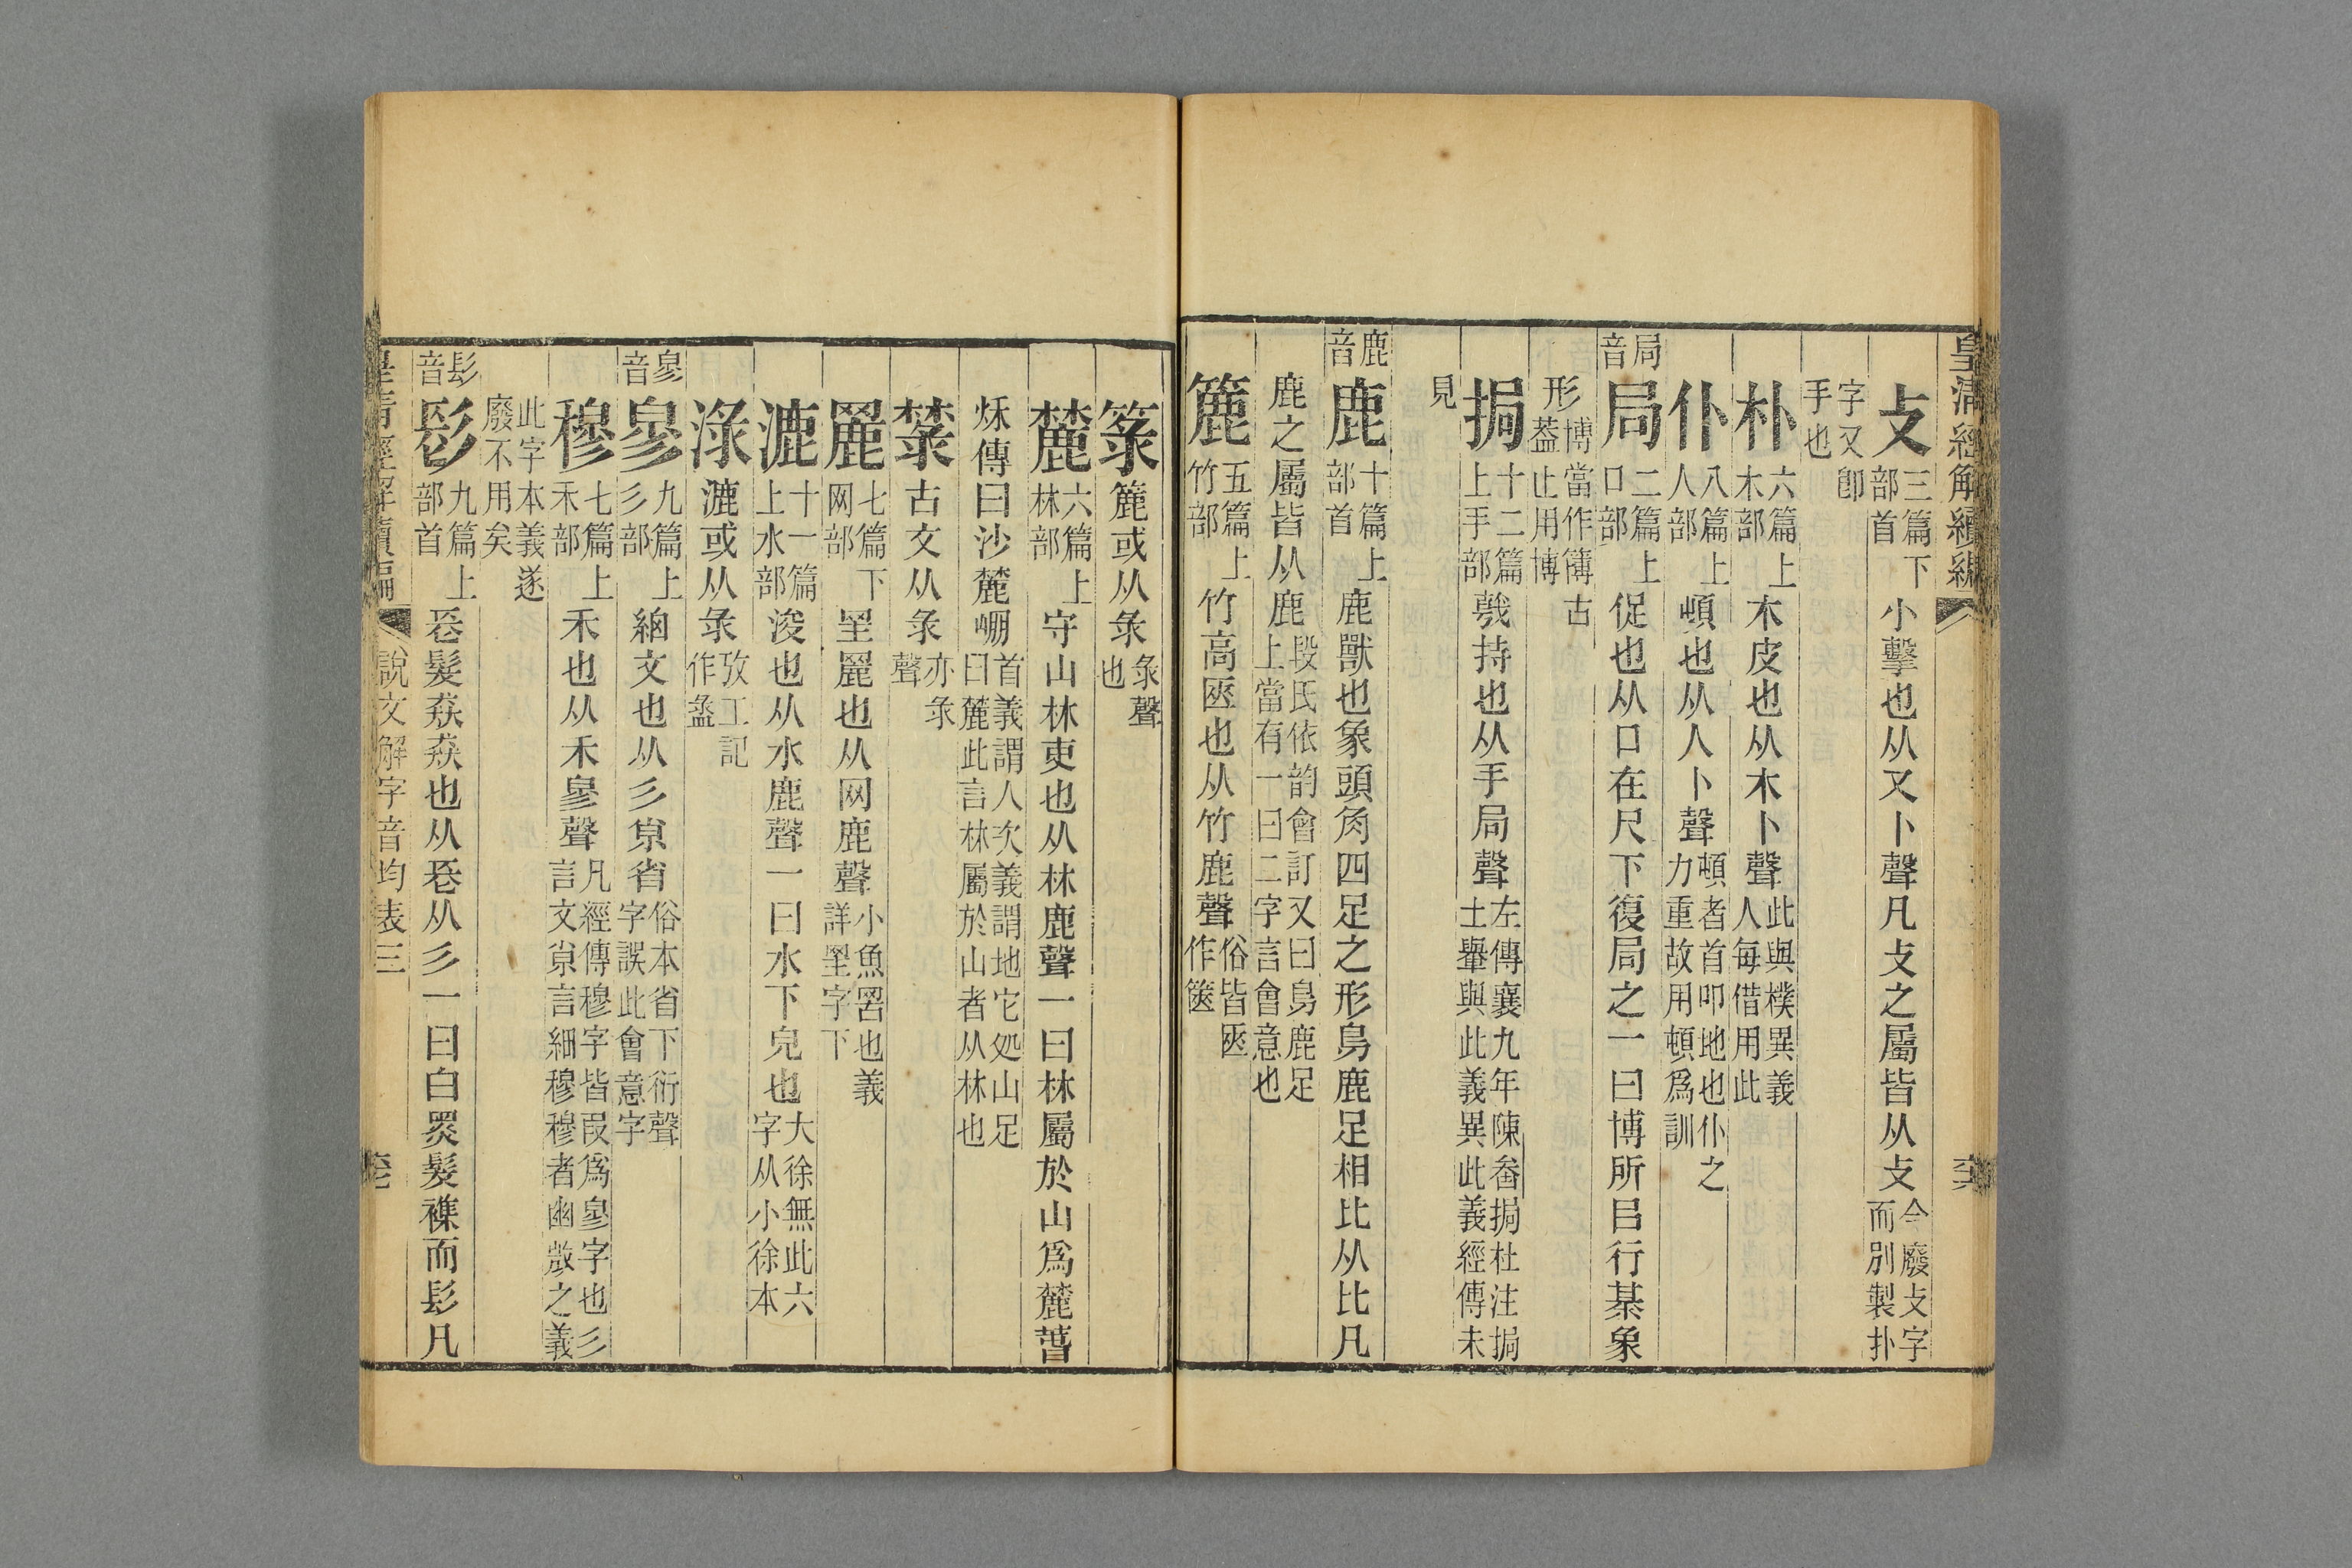 皇淸經解續編
攴三篇下部首小擊也从又卜聲凡攴之屬皆从攴今廢攴字而別製扑
字又卽手也
朴六篇上木部木皮也从木卜聲此與樸異義人每借用此
仆八篇上人部頓也从人卜聲頓者首叩地也仆之力重故用頓爲訓
局音局二篇上口部促也从口在尺下復局之一曰博所㠯行棊象
形博當作簙古葢止用博
挶十二篇上手部㦸持也从手局聲左傳襄九年陳畚挶杜注挶土轝與此義異此義經傳未
見
鹿音鹿十篇上部首鹿獸也象頭角四足之形鳥鹿足相比从比凡
鹿之屬皆从鹿段氏依韵會訂又曰鳥鹿足上當有一曰二字言會意也
簏五篇上竹部竹高匧也从竹鹿聲俗皆匧作篋
箓簏或从彔彔聲也
麓六篇上林部守山林吏也从林鹿聲一曰林屬於山爲麓萅
秌傳曰沙麓崩首義謂人次義謂地它処山足曰麓此言林屬於山者从林也
禁古文从彔亦彔聲
麗七篇下网部罜麗也从网鹿聲小魚罟也義詳罜字下
漉十一篇上水部浚也从水鹿聲一曰水下皃也大徐無此六字从小徐本
淥漉或从彔攷工記作盝
㣎音㣎九篇上彡部細文也从彡𡭴省俗本省下衍聲字誤此會意字
穆七篇上禾部禾也从禾㣎聲凡經傳穆字皆叚爲㣎字也彡言文𡭴言細穆穆者幽㪚之義
此字本義遂廢不用矣
髟音髟九篇上部首長髮猋猋也从長从彡一曰白黑髮襍而髟凡
皇淸經解續編 說文解字音均表三